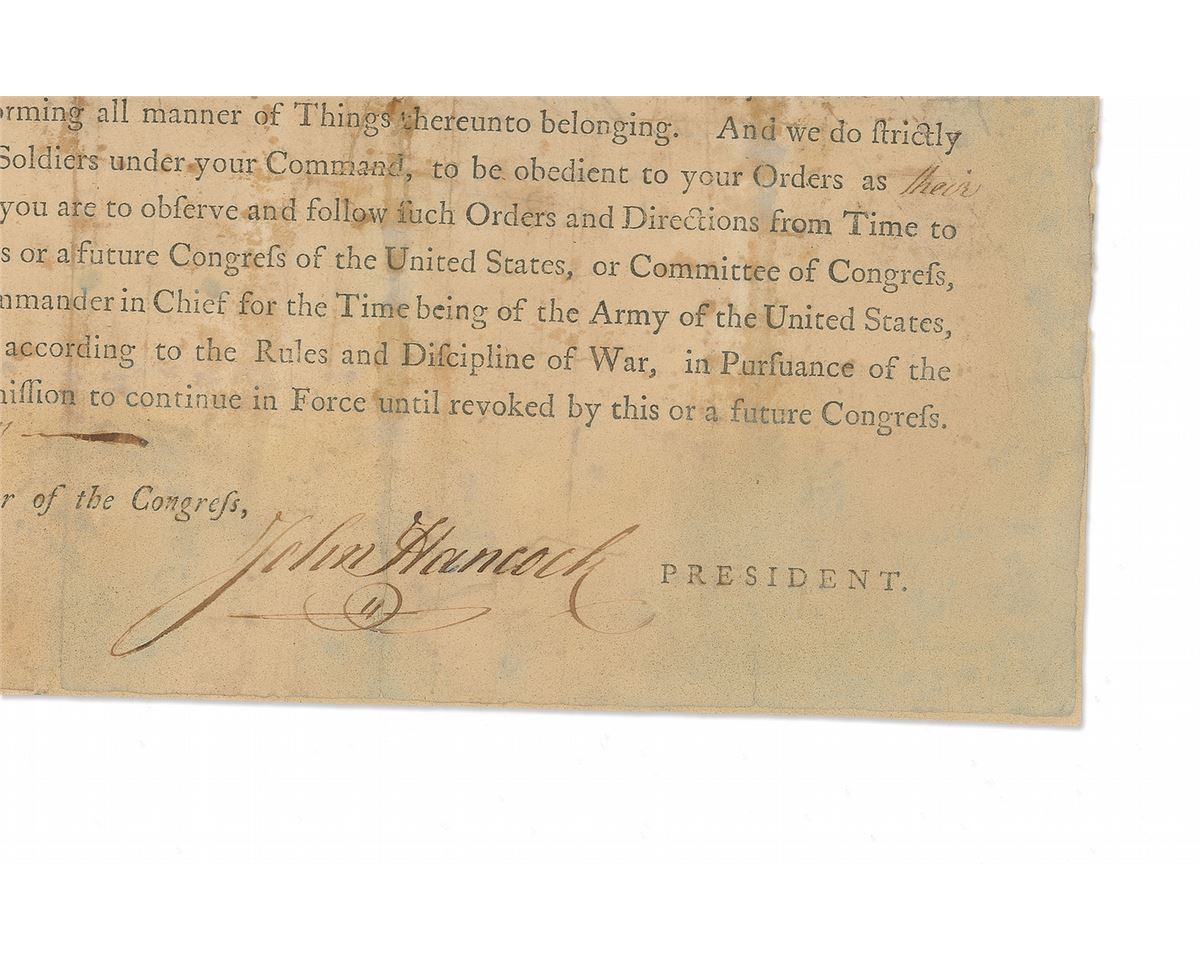 orming all manner of Things thereunto belonging. And we do ſtrictly
Soldiers under your Command, to be obedient to your Orders as their
you are to obſerve and follow ſuch Orders and Directions from Time to
s or a future Congreſs of the United States, or Committee of Congreſs,
mmander in Chief for the Time being of the Army of the United States,
according to the Rules and Diſcipline of War, in Purſuance of the
miſſion to continue in Force until revoked by this or a future Congreſs.
r of the Congreſs,
John Hancock PRESIDENT.